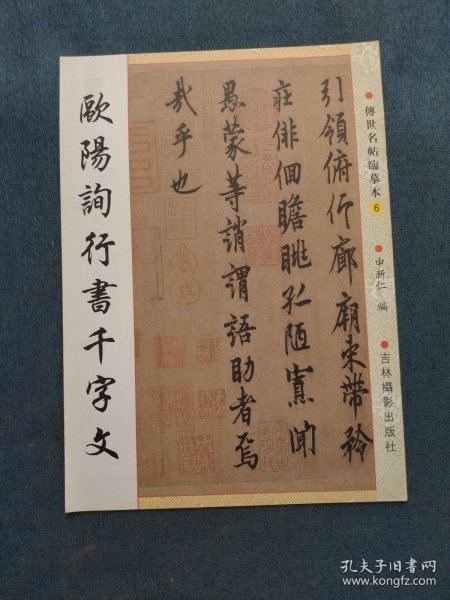 歐陽詢行書千字文
引領俯仰廊廟束帶矜
莊俳佪瞻眺孤陋寡聞
愚蒙等誚謂語助者焉
哉乎也
傳世名帖臨摹本 6
申新仁 編
吉林攝影出版社
孔夫子旧书网
www.kongfz.com